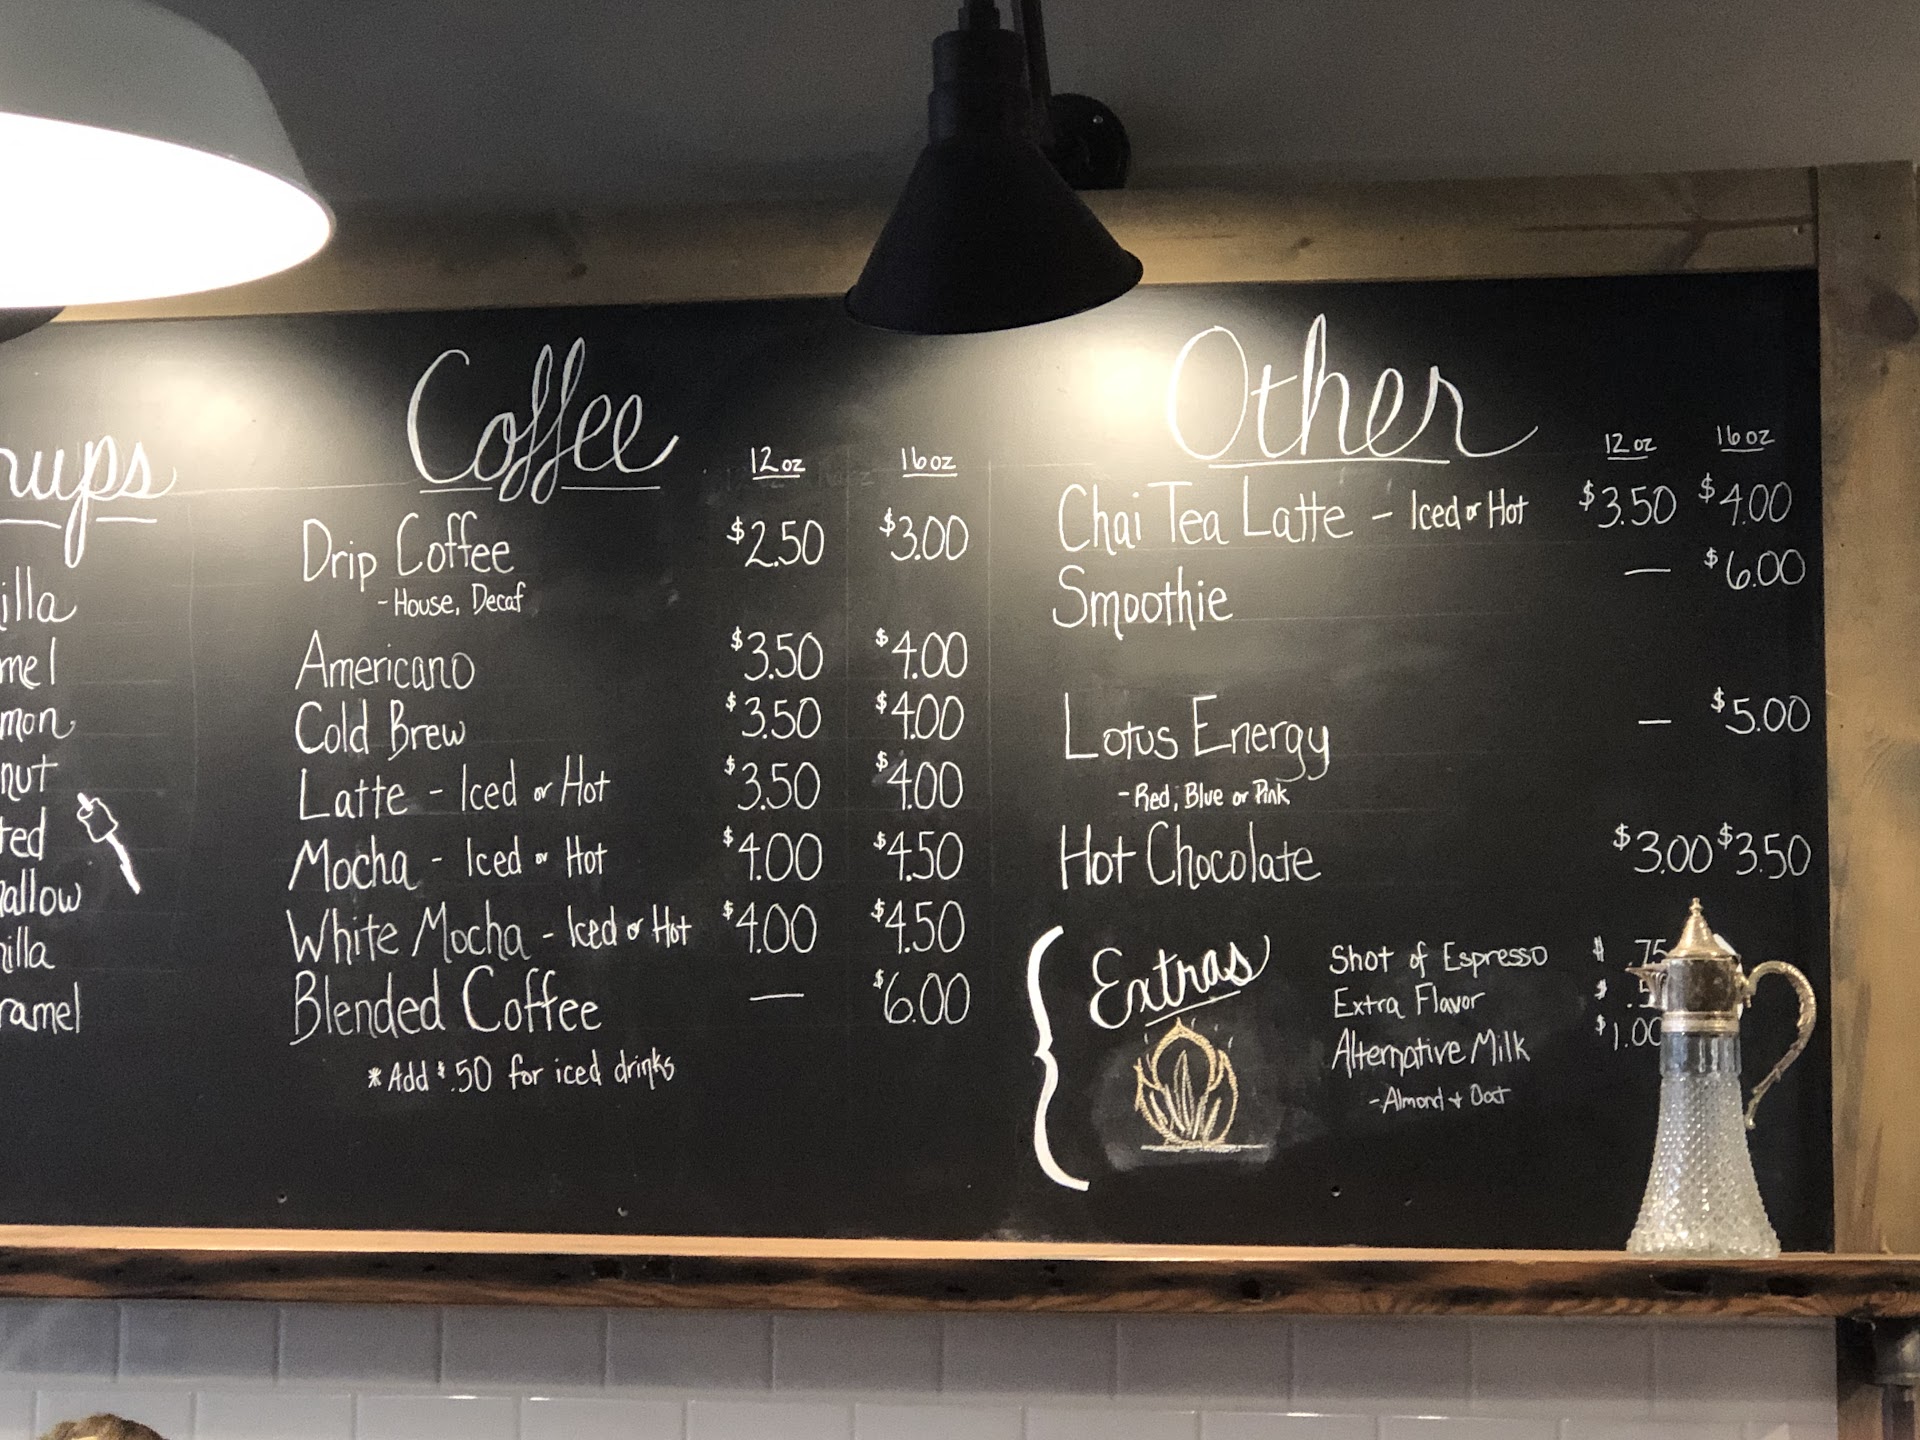 rups
illa
mel
mon
nut
ted
allow
illa
ramel
Coffee
12 oz 16 oz
Drip Coffee $2.50 $3.00
- House, Decaf
Americano $3.50 $4.00
Cold Brew $3.50 $4.00
Latte - Iced or Hot $3.50 $4.00
Mocha - Iced or Hot $4.00 $4.50
White Mocha - Iced or Hot $4.00 $4.50
Blended Coffee — $6.00
* Add $.50 for iced drinks
Other
12 oz 16 oz
Chai Tea Latte - Iced or Hot $3.50 $4.00
Smoothie — $6.00
Lotus Energy — $5.00
- Red, Blue or Pink
Hot Chocolate $3.00 $3.50
Extras
Shot of Espresso $ .75
Extra Flavor $ .5
Alternative Milk $1.00
- Almond + Oat